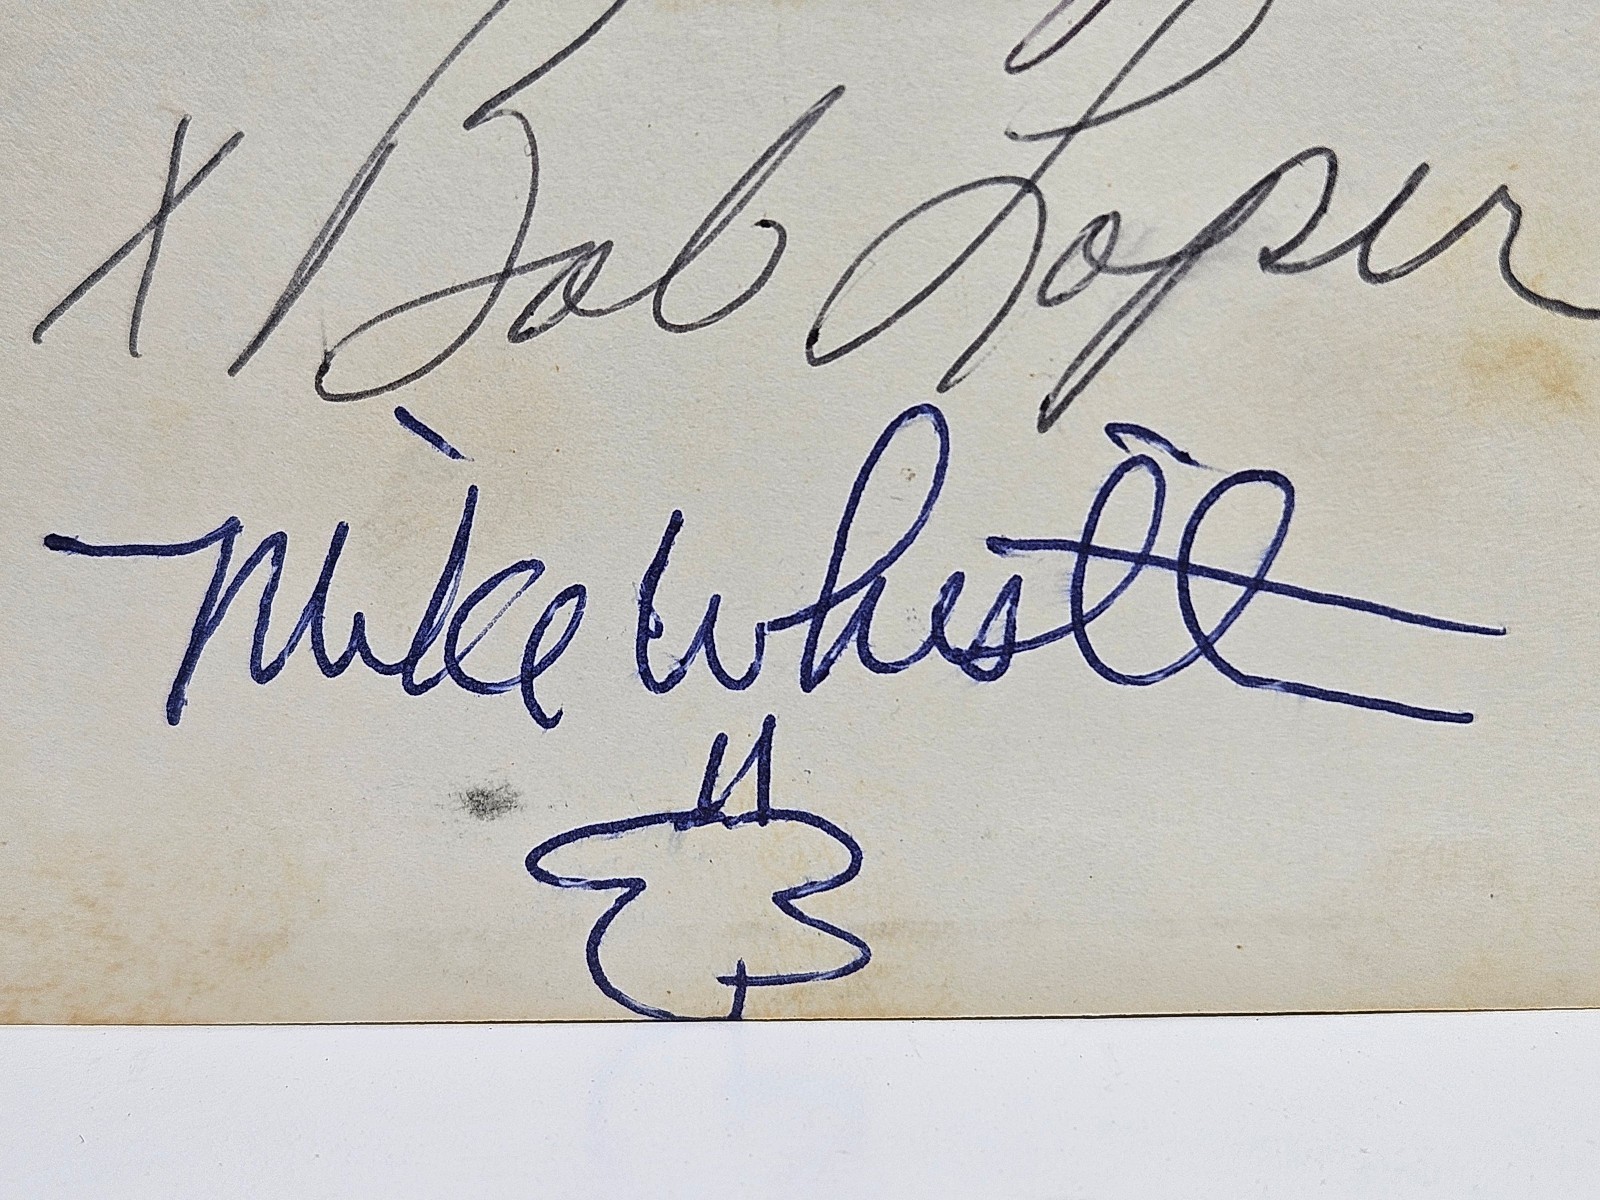 x Bob Loper
Mike Whistl